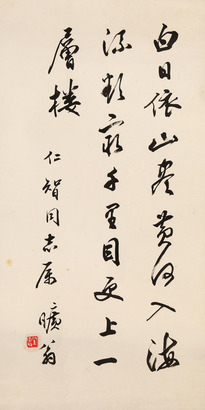 白日依山尽黄河入海
流欲窮千里目更上一
層楼
仁智同志属 曠翁